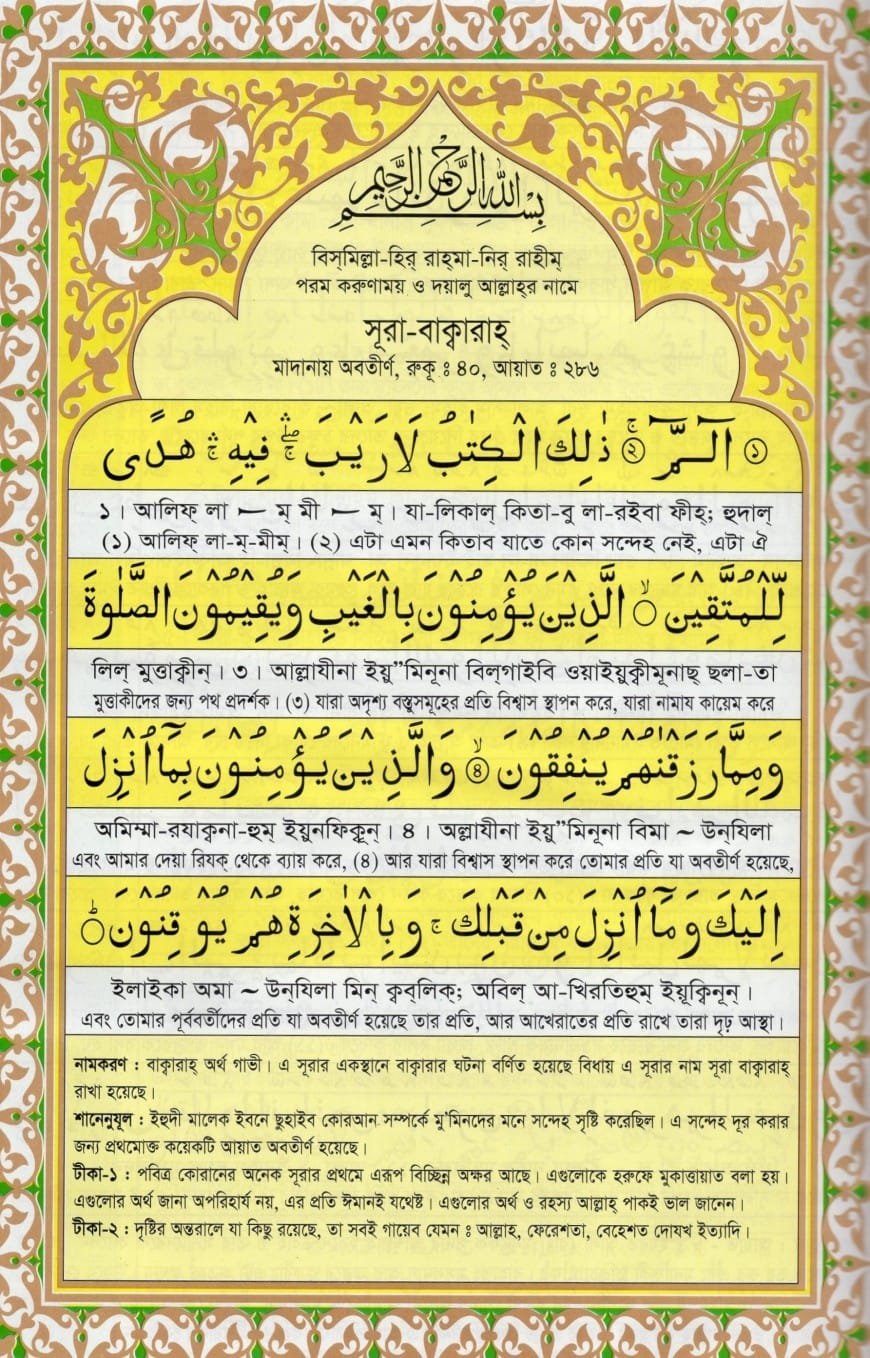 بِسْمِ اللهِ الرَّحْمٰنِ الرَّحِيْمِ
বিস্‌মিল্লা-হির্ রাহ্‌মা-নির্ রাহীম্
পরম করুণাময় ও দয়ালু আল্লাহ্‌র নামে
সূরা-বাক্বারাহ্
মাদানায় অবতীর্ণ, রুকূ ঃ ৪০, আয়াত ঃ ২৮৬
১ الٓـمّٓ ২ۚ ذٰلِكَ الْكِتٰبُ لَا رَيْبَ ۛۖ فِيْهِ ۛ هُدًى
১। আলিফ্ লা — ম্ মী — ম্। যা-লিকাল্ কিতা-বু লা-রইবা ফীহ্; হুদাল্
(১) আলিফ্ লা-ম্-মীম্। (২) এটা এমন কিতাব যাতে কোন সন্দেহ নেই, এটা ঐ
لِّلْمُتَّقِيْنَ ۙ○ الَّذِيْنَ يُؤْمِنُوْنَ بِالْغَيْبِ وَيُقِيْمُوْنَ الصَّلٰوةَ
লিল্ মুত্তাক্বীন্। ৩। আল্লাযীনা ইয়ু”মিনূনা বিল্‌গাইবি ওয়াইয়ুক্বীমূনাছ্ ছলা-তা
মুত্তাকীদের জন্য পথ প্রদর্শক। (৩) যারা অদৃশ্য বস্তুসমূহের প্রতি বিশ্বাস স্থাপন করে, যারা নামায কায়েম করে
وَمِمَّا رَزَقْنٰهُمْ يُنْفِقُوْنَ ۙ৪ وَالَّذِيْنَ يُؤْمِنُوْنَ بِمَآ اُنْزِلَ
অমিম্মা-রযাক্বনা-হুম্ ইয়ুনফিক্বূন্। ৪। অল্লাযীনা ইয়ু”মিনূনা বিমা ~ উন্‌যিলা
এবং আমার দেয়া রিযক্ থেকে ব্যায় করে, (৪) আর যারা বিশ্বাস স্থাপন করে তোমার প্রতি যা অবতীর্ণ হয়েছে,
اِلَيْكَ وَمَآ اُنْزِلَ مِنْ قَبْلِكَ ۚ وَبِالْاٰخِرَةِ هُمْ يُوْقِنُوْنَ ؕ○
ইলাইকা অমা ~ উন্‌যিলা মিন্ ক্বব্‌লিক্; অবিল্ আ-খিরতিহুম্ ইয়ূক্বিনূন্।
এবং তোমার পূর্ববর্তীদের প্রতি যা অবতীর্ণ হয়েছে তার প্রতি, আর আখেরাতের প্রতি রাখে তারা দৃঢ় আস্থা।
নামকরণ : বাক্বারাহ্ অর্থ গাভী। এ সূরার একস্থানে বাক্বারার ঘটনা বর্ণিত হয়েছে বিধায় এ সূরার নাম সূরা বাক্বারাহ্
রাখা হয়েছে।
শানেনুযূল : ইহুদী মালেক ইবনে ছুহাইব কোরআন সম্পর্কে মু’মিনদের মনে সন্দেহ সৃষ্টি করেছিল। এ সন্দেহ দূর করার
জন্য প্রথমোক্ত কয়েকটি আয়াত অবতীর্ণ হয়েছে।
টীকা-১ : পবিত্র কোরানের অনেক সূরার প্রথমে এরূপ বিচ্ছিন্ন অক্ষর আছে। এগুলোকে হরুফে মুকাত্তায়াত বলা হয়।
এগুলোর অর্থ জানা অপরিহার্য নয়, এর প্রতি ঈমানই যথেষ্ট। এগুলোর অর্থ ও রহস্য আল্লাহ্ পাকই ভাল জানেন।
টীকা-২ : দৃষ্টির অন্তরালে যা কিছু রয়েছে, তা সবই গায়েব যেমন ঃ আল্লাহ, ফেরেশতা, বেহেশত দোযখ ইত্যাদি।